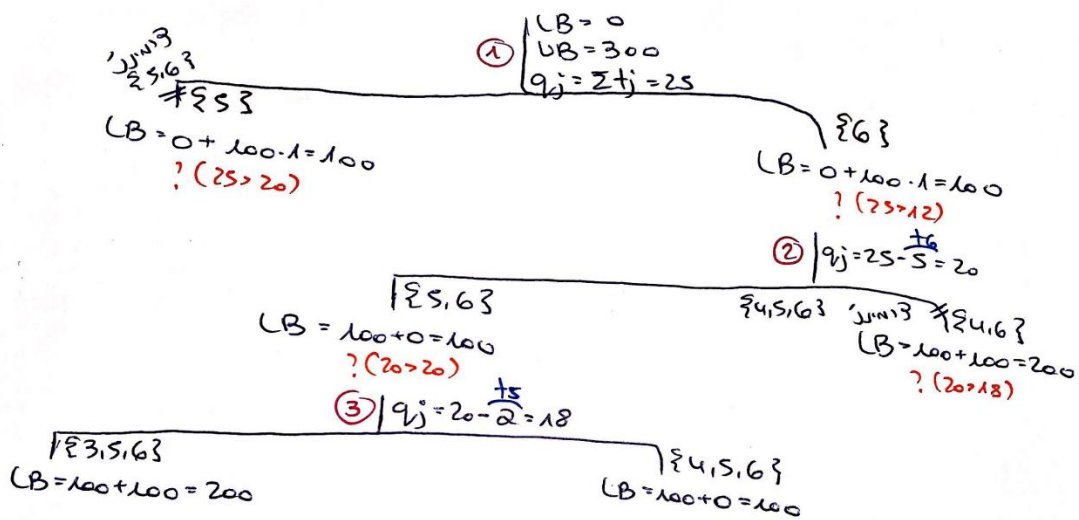 ① LB = 0
UB = 300
qj = Σtj = 25
{5,6}
*{5}
LB = 0 + 100·1 = 100
? (25>20)
{6}
LB = 0 + 100·1 = 100
? (25>12)
② qj = 25 - 5 = 20
t6
{5,6}
LB = 100+0=100
? (20>20)
{4,5,6}
*{4,6}
LB = 100+100=200
? (20>18)
③ qj = 20 - 2 = 18
t5
{3,5,6}
LB = 100+100 = 200
{4,5,6}
LB = 100+0 = 100